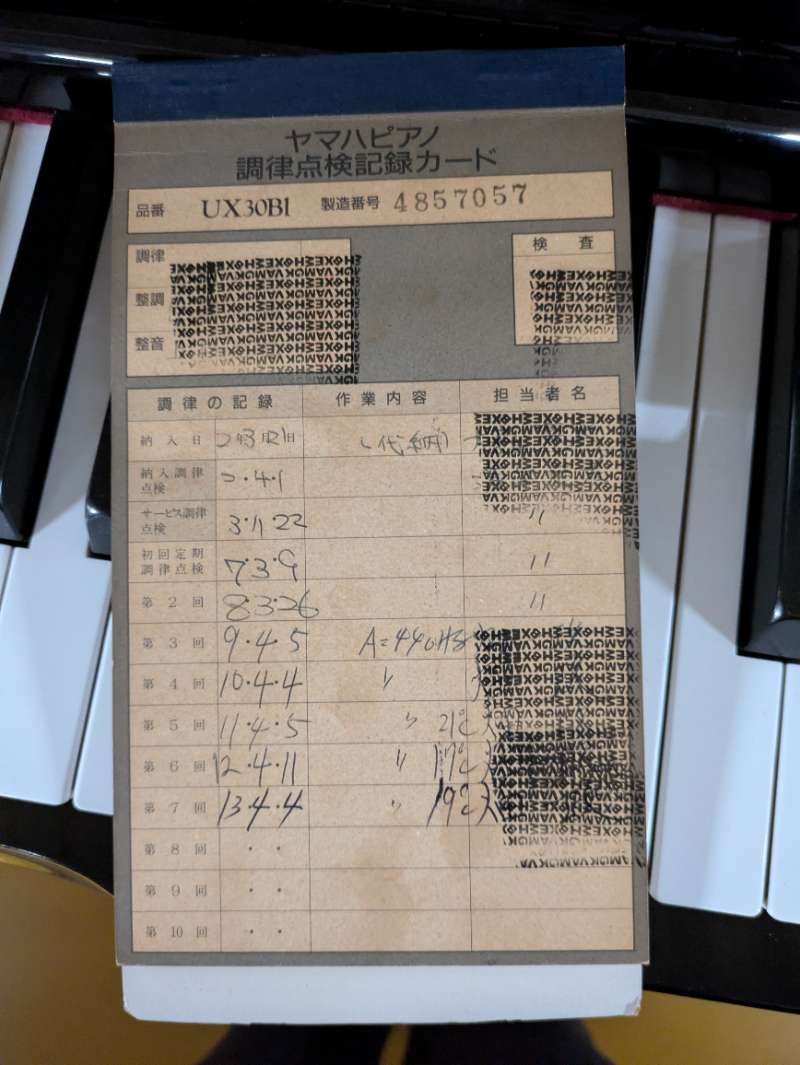 ヤマハピアノ
調律点検記録カード
品番 UX30Bl 製造番号 4857057
調律
整調
整音
検査
調律の記録 作業内容 担当者名
納入日 2年3月21日 (代納)
納入調律点検 2・4・1
サービス調律点検 3・11・22 〃
初回定期調律点検 7・3・9 〃
第2回 8・3・26 〃
第3回 9・4・5 A=440Hz
第4回 10・4・4 〃
第5回 11・4・5 〃 21℃
第6回 12・4・11 〃 17℃
第7回 13・4・4 〃 19℃
第8回 ・ ・
第9回 ・ ・
第10回 ・ ・